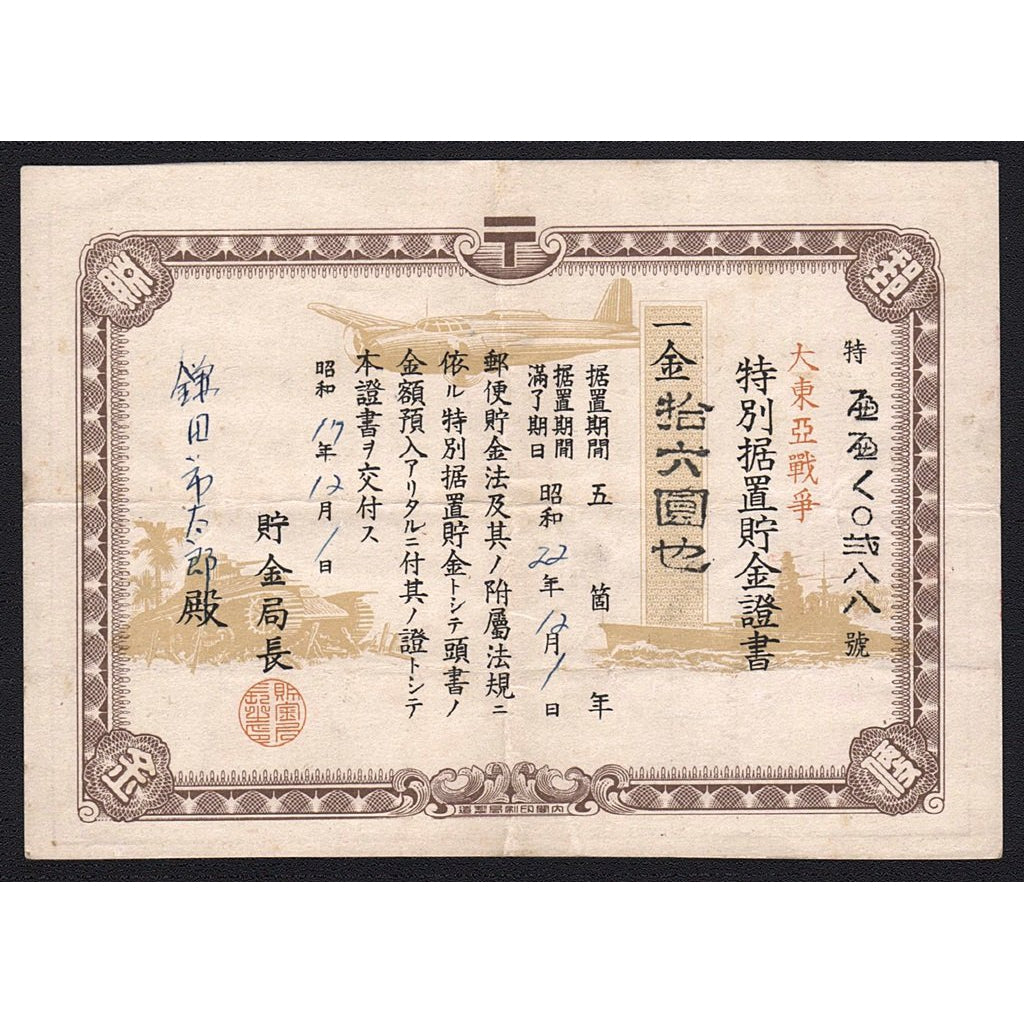 〒
特 〇弐八八號
大東亞戰爭
特別据置貯金證書
一金拾六圓也
据置期間 五箇年
据置期間滿了期日 昭和22年12月1日
郵便貯金法及其ノ附屬法規ニ
依ル特別据置貯金トシテ頭書ノ
金額預入アリタルニ付其ノ證トシテ
本證書ヲ交付ス
昭和17年12月1日
貯金局長
鎌田市太郎殿
内閣印刷局製造